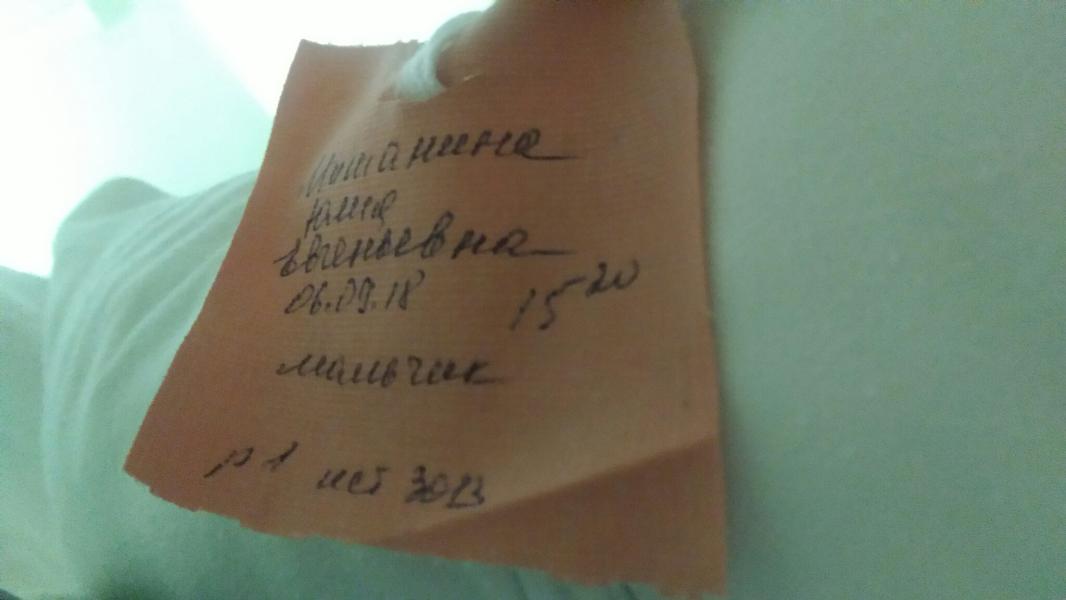 Юлия
Евгеньевна
06.09.18 15 20
мальчик
р 1 ист 3013